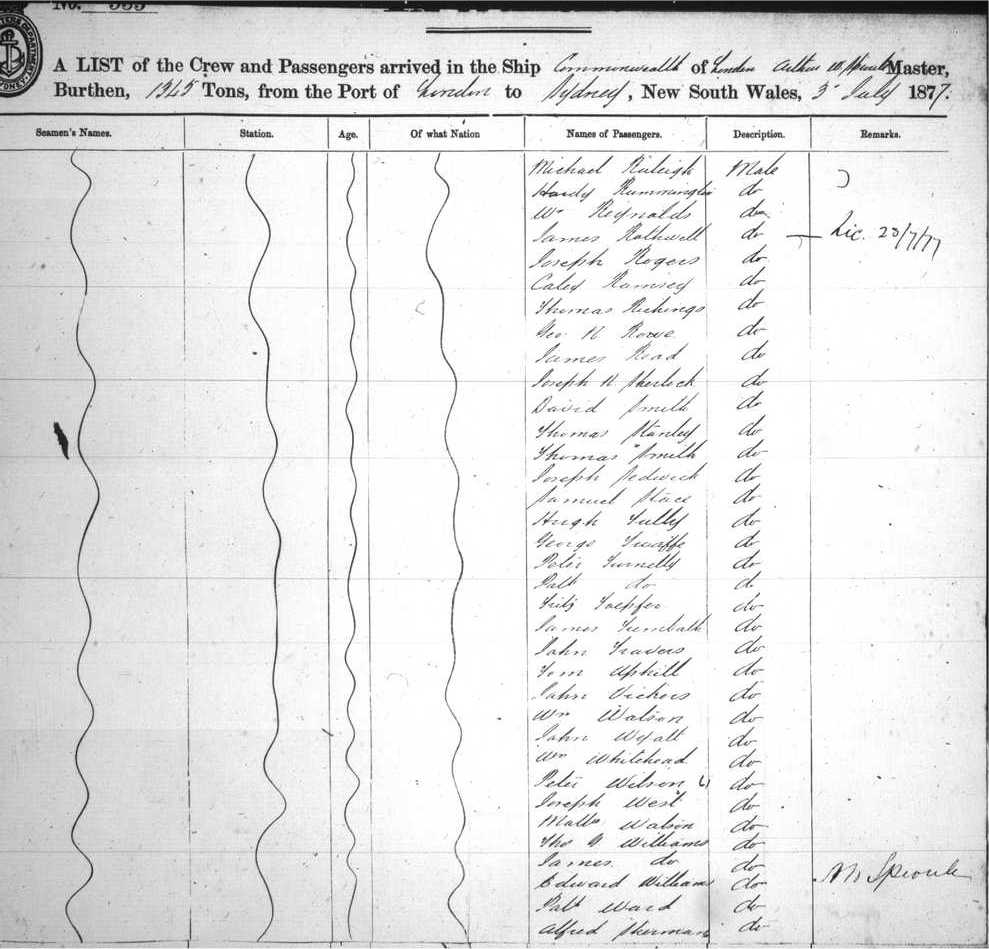 No. 555
A LIST of the Crew and Passengers arrived in the Ship Commonwealth of London Arthur W. Master,
Burthen, 1345 Tons, from the Port of London to Sydney, New South Wales, 3 July 1877.
Seamen's Names. Station. Age. Of what Nation Names of Passengers. Description. Remarks.
Michael Raleigh Male
Hardy do
Wm Reynolds do
James Rothwell do Lic. 23/7/77
Joseph Rogers do
Ramsey do
Thomas Richings do
Geo H Rowe do
James Read do
Joseph H Sherlock do
David Smith do
Thomas Stanley do
Thomas Smith do
Joseph Sedwick do
Samuel Stace do
Hugh Tully do
George do
Peter do
Patk do do
Fritz Toepfer do
James do
John Travers do
Tom Uphill do
John Vickers do
Wm Watson do
John Wyatt do
Wm Whitehead do
Peter Wilson do
Joseph West do
Watson do
Thos Williams do
James do do
Edward Williams do
Patk Ward do
Alfred Sherman do